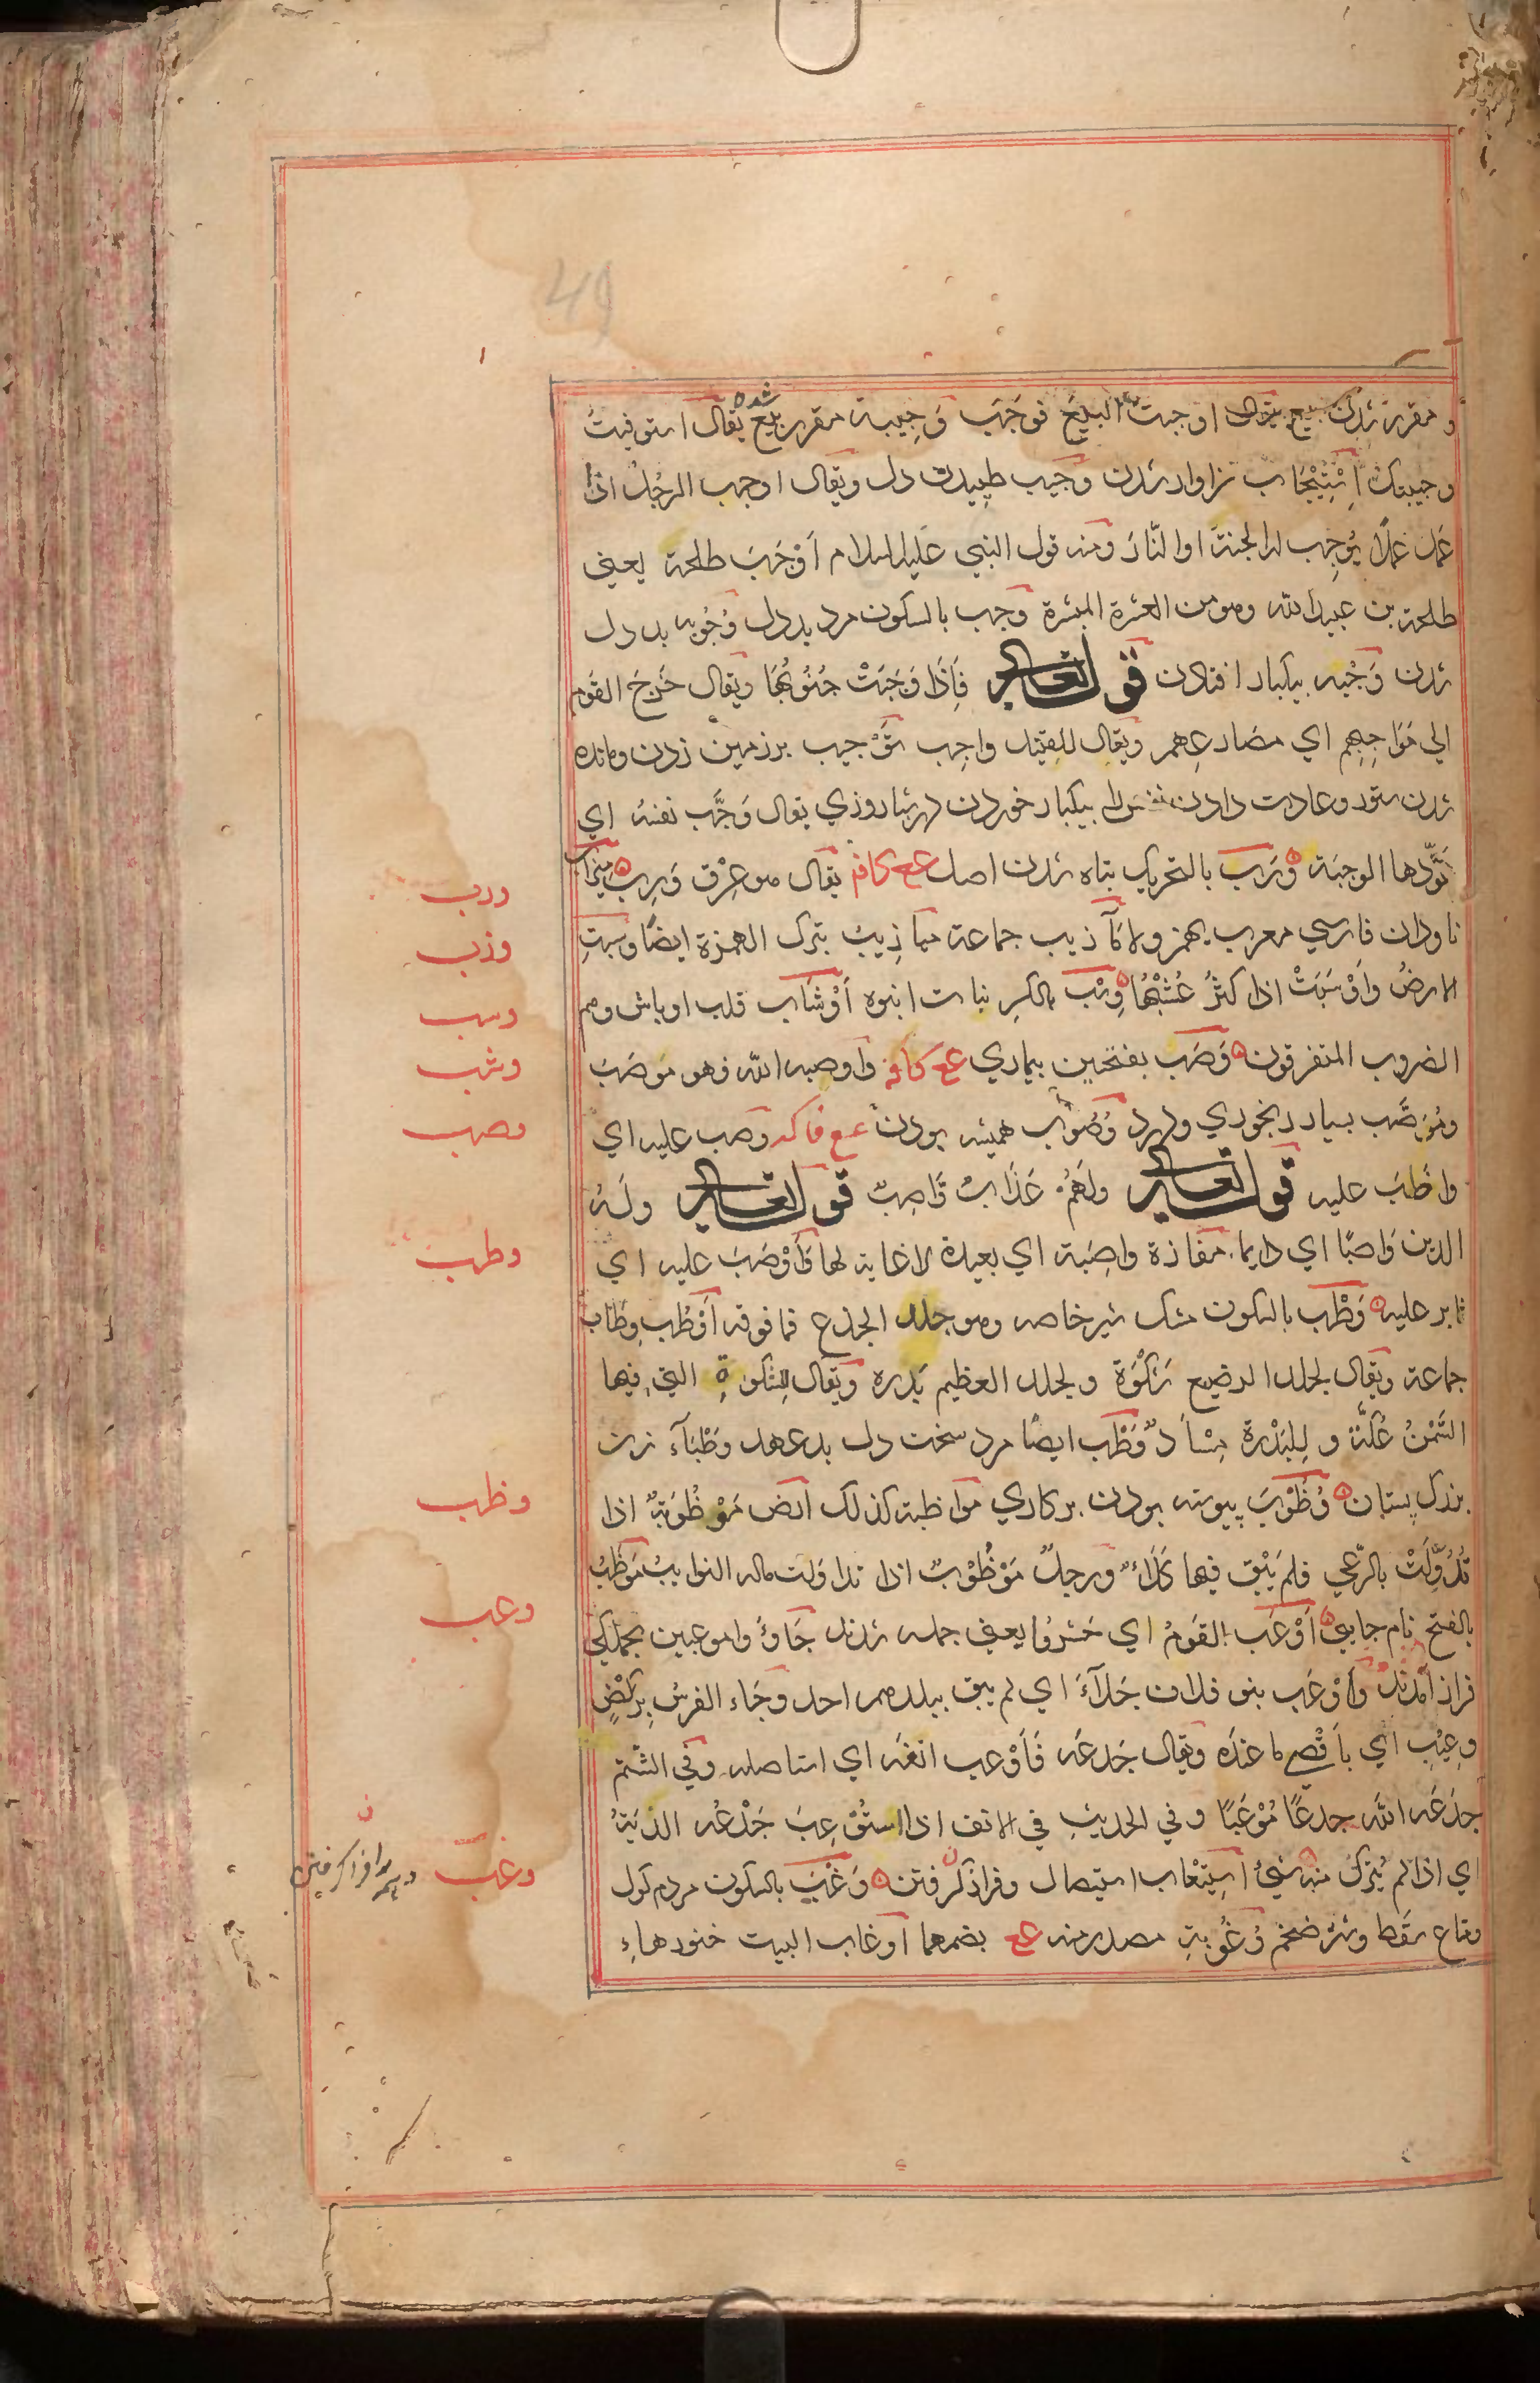 و مقرر شدن بيع يقال اوجبت البيع فوجب وَجِيبة مقرر بيع شده يقال استوفيتُ
وجيبتك اِسْتِيْجَاب سزاوار شدن وَجيب طپيدن دل ويقال اوجب الرجُل اذا
عَمل عملاً يُوجِب له الجنة او النّارَ ومنه قول النبي عليه السلام اَوْجَبَ طلحة يعني
طلحة بن عبيد الله وهو من العشرة المبشرة وَجب بالسكون مرد بددل وُجُوبه بددل
شدن وَجْبه بيكبار افتادن قوله تعالى فَاِذَا وَجَبَتْ جُنُوبُهَا ويقال خَرَجَ القوم
الى مَوَاجِبِهِم اي مصَارِعِهم ويقال للقتيل واجِب تَوْجيب بر زمين زدن ومانده
شدن ستور وعادت دادن نفس را بيكبار خوردن در شباروزي يقال وَجَّب نفسَهُ اي
عَوّدها الوجبَة وَرَب بالتحريك تباه شدن اصل عع كافه يقال هو عِرْق وَرِب ميزاب
ناودان فارسي معرب بهمز ولا مَآزيب جماعة ميازِيبُ بترك الهمزة ايضًا وَسبتِ
الارضُ وَاَوْسَبَتْ اذا كثرُ عُشْبُهَا وِسْب بالكسر نبات انبوه اَوْشَاب قلب اوباش وهم
الضروب المتفرقون وَصَب بفتحتين بيماري عع كافه وَاوصبه الله فهو مُوصَبَ
ومُوَصَّب بسيار رنجوري ودرد وُصُوْب هميشه بودن عع فاكه وصب عليه اي
واظَبَ عليه قوله تعالى ولَهُمْ عَذَابٌ وَّاصِبٌ قوله تعالى ولَهُ
الدين وَاصبًا اي دايما مفازة واصِبَة اي بعيدة لا غاية لها وَاَوْصَبَ عليه اي
ثابر عليه وَطْب بالسكون مشك شير خاصه وهو جلد الجذع فما فوقه اَوْطُب وِطَاب
جماعة ويقال لجلد الرضيع شَكْوَة ولجلد العظيم بَدرة ويقال لِلشكوةِ التي فيها
السَّمْنُ عُكَّة و لِلبَدْرةِ مِسْاَد وَطْب ايضًا مرد سخت دل بدعهد وطْبَآء زن
بزرك پستان وُظُوْبَ پيوسته بودن بر كاري مَواظبة كذلك اَرض مَوْظُوَبةٌ اذا
تُدُوِّلَتْ بالرّعي فلم يَبْق فيها كَلَاءٌ ورجلٌ مَوْظُوْبٌ اذا تداوَلت ماله النوايبُ مَوظَبُ
بالفتح نام جايي اَوْعَب القَومُ اي حَشَرُوا يعني جمله شدند جَاوُا موعبين بجملكي
فراز آمدند وَاَوْعَب بنو فلان جَلَآءَ اي لم يبق ببلدهم احد وجَاء الفرسُ بِركْضٍ
وعِيْبٍ اي بأَقْصى ما عنده ويقال جَدعَه فَاَوْعب انفَه اي استاصله وفي الشتم
جدَعَه الله جدعًا مُوْعَبًا وفي الحديثِ في الانف اذا استُوْعِبَ جَدْعُه الديَةُ
اي اذا لم يُترك منه شيْ اِسْتِيْعَاب استيصال وفراز كرفتن وَغْب بالسكون مردم كول
ومتاع سَقط وشتر ضخم وُغُوبة مصدر منه عع بضمهما اَوغاب البيت خنورهاءِ
ورب
وزب
وسب
وشب
وصب
وطب
وظب
وعب
وغب